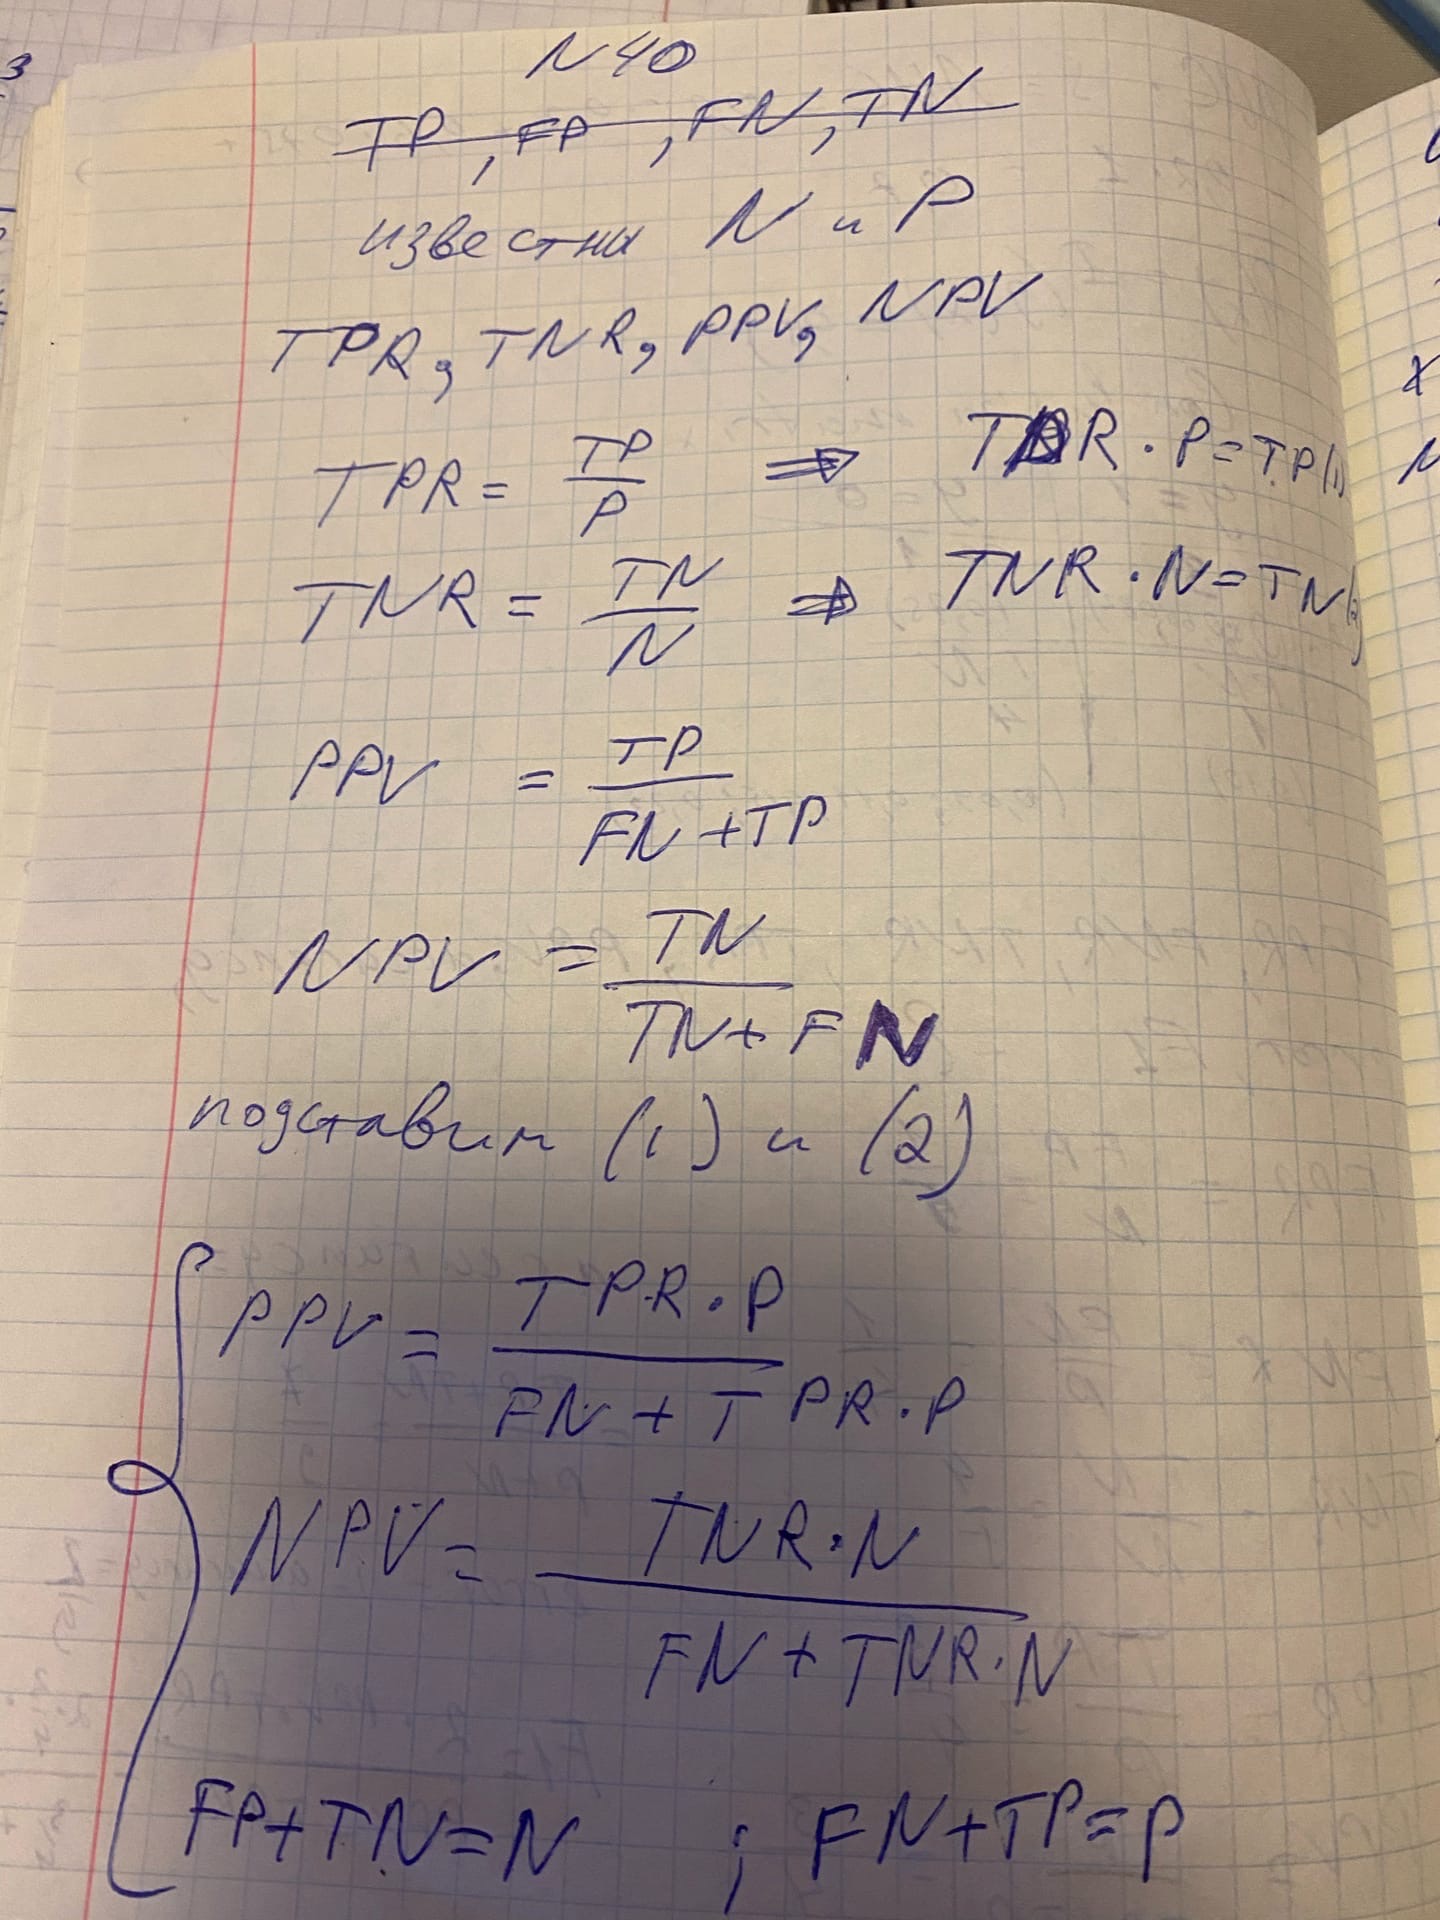 N40
TP, FP, FN, TN
известны N и P
TPR, TNR, PPV, NPV
TPR = TP/P ⇒ TPR · P = TP (1)
TNR = TN/N ⇒ TNR · N = TN (2)
PPV = TP/(FN + TP)
NPV = TN/(TN + FN)
подставим (1) и (2)
PPV = TPR · P/(FN + TPR · P)
NPV = TNR · N/(FN + TNR · N)
FP + TN = N ; FN + TP = P